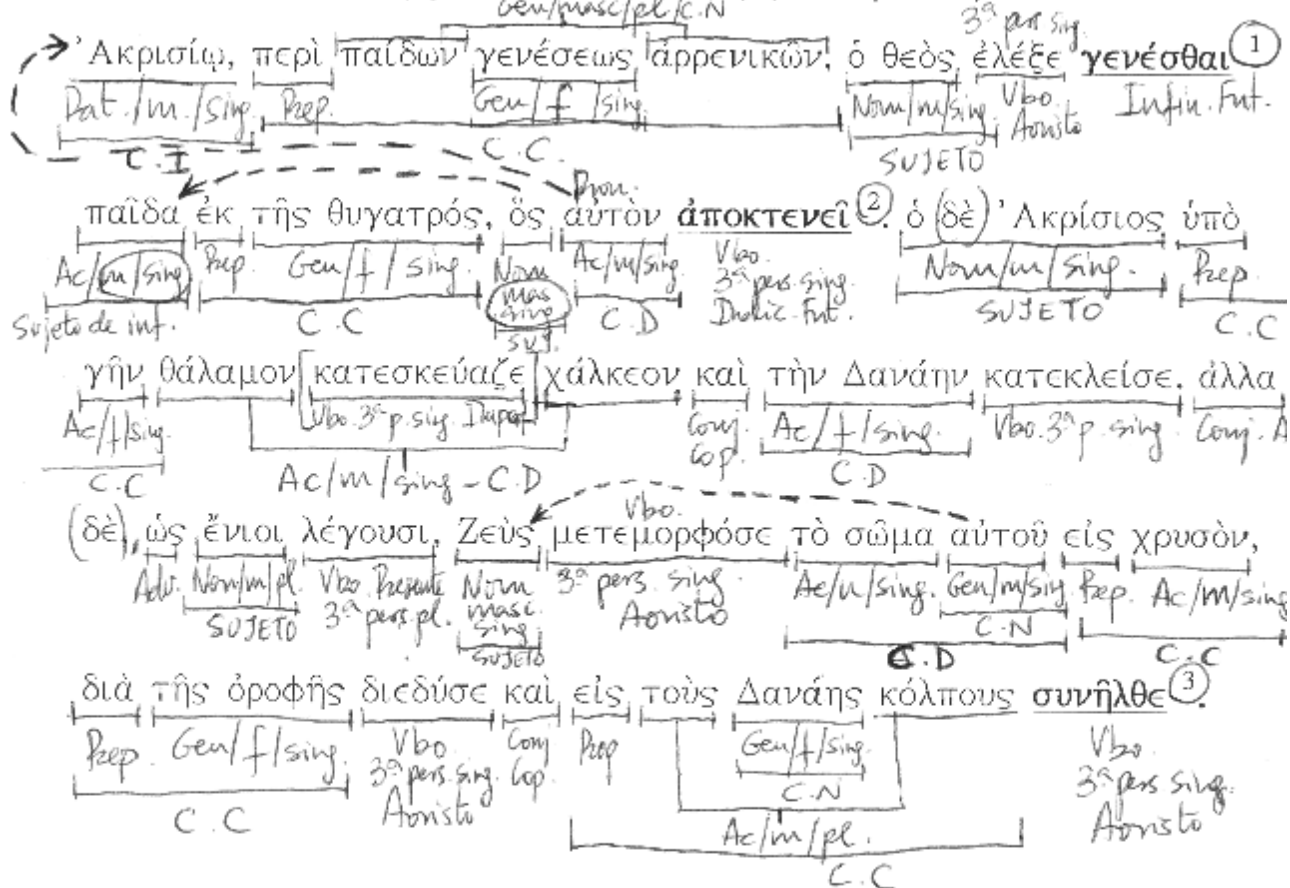 Gen/masc/pl/C.N
3ª pers sing.
Ἀκρισίῳ, περὶ παίδων γενέσεως ἀρρενικῶν, ὁ θεὸς ἐλέξε γενέσθαι ①
Dat./m./sing Prep. Gen/f/sing Nom/m/sing Vbo. Aoristo Infin. Fut.
C.I C.C. SUJETO
Pron.
παῖδα ἐκ τῆς θυγατρός, ὃς αὐτὸν ἀποκτενεῖ ②. ὁ (δὲ) Ἀκρίσιος ὑπὸ
Ac/m/sing Prep. Gen/f/sing. Nom mas sing Ac/m/sing Vbo. 3ª pers. sing. Indic. Fut. Nom/m/sing. Prep
Sujeto de inf. C.C SUJ. C.D SUJETO C.C
γῆν θάλαμον [κατεσκεύαζε] χάλκεον καὶ τὴν Δανάην κατεκλείσε. ἀλλα
Ac/f/sing. Vbo. 3ª p. sing. Imperf Conj. Cop. Ac/f/sing. Vbo. 3ª p. sing Conj. A
C.C Ac/m/sing - C.D C.D
Vbo.
(δὲ), ὡς ἔνιοι λέγουσι, Ζεὺς μετεμορφόσε τὸ σῶμα αὐτοῦ εἰς χρυσὸν,
Adv. Nom/m/pl. Vbo. Presente 3ª pers. pl. Nom masc. sing 3ª pers. sing. Aoristo Ac/n/sing. Gen/m/sing Prep. Ac/m/sing
SUJETO SUJETO C.N
C.D C.C
διὰ τῆς ὀροφῆς διεδύσε καὶ εἰς τοὺς Δανάης κόλπους συνῆλθε ③.
Prep. Gen/f/sing. Vbo. 3ª pers. sing. Aoristo Conj Cop. Prep Gen/f/sing. Vbo. 3ª pers sing. Aoristo
C.C C.N
Ac/m/pl.
C.C